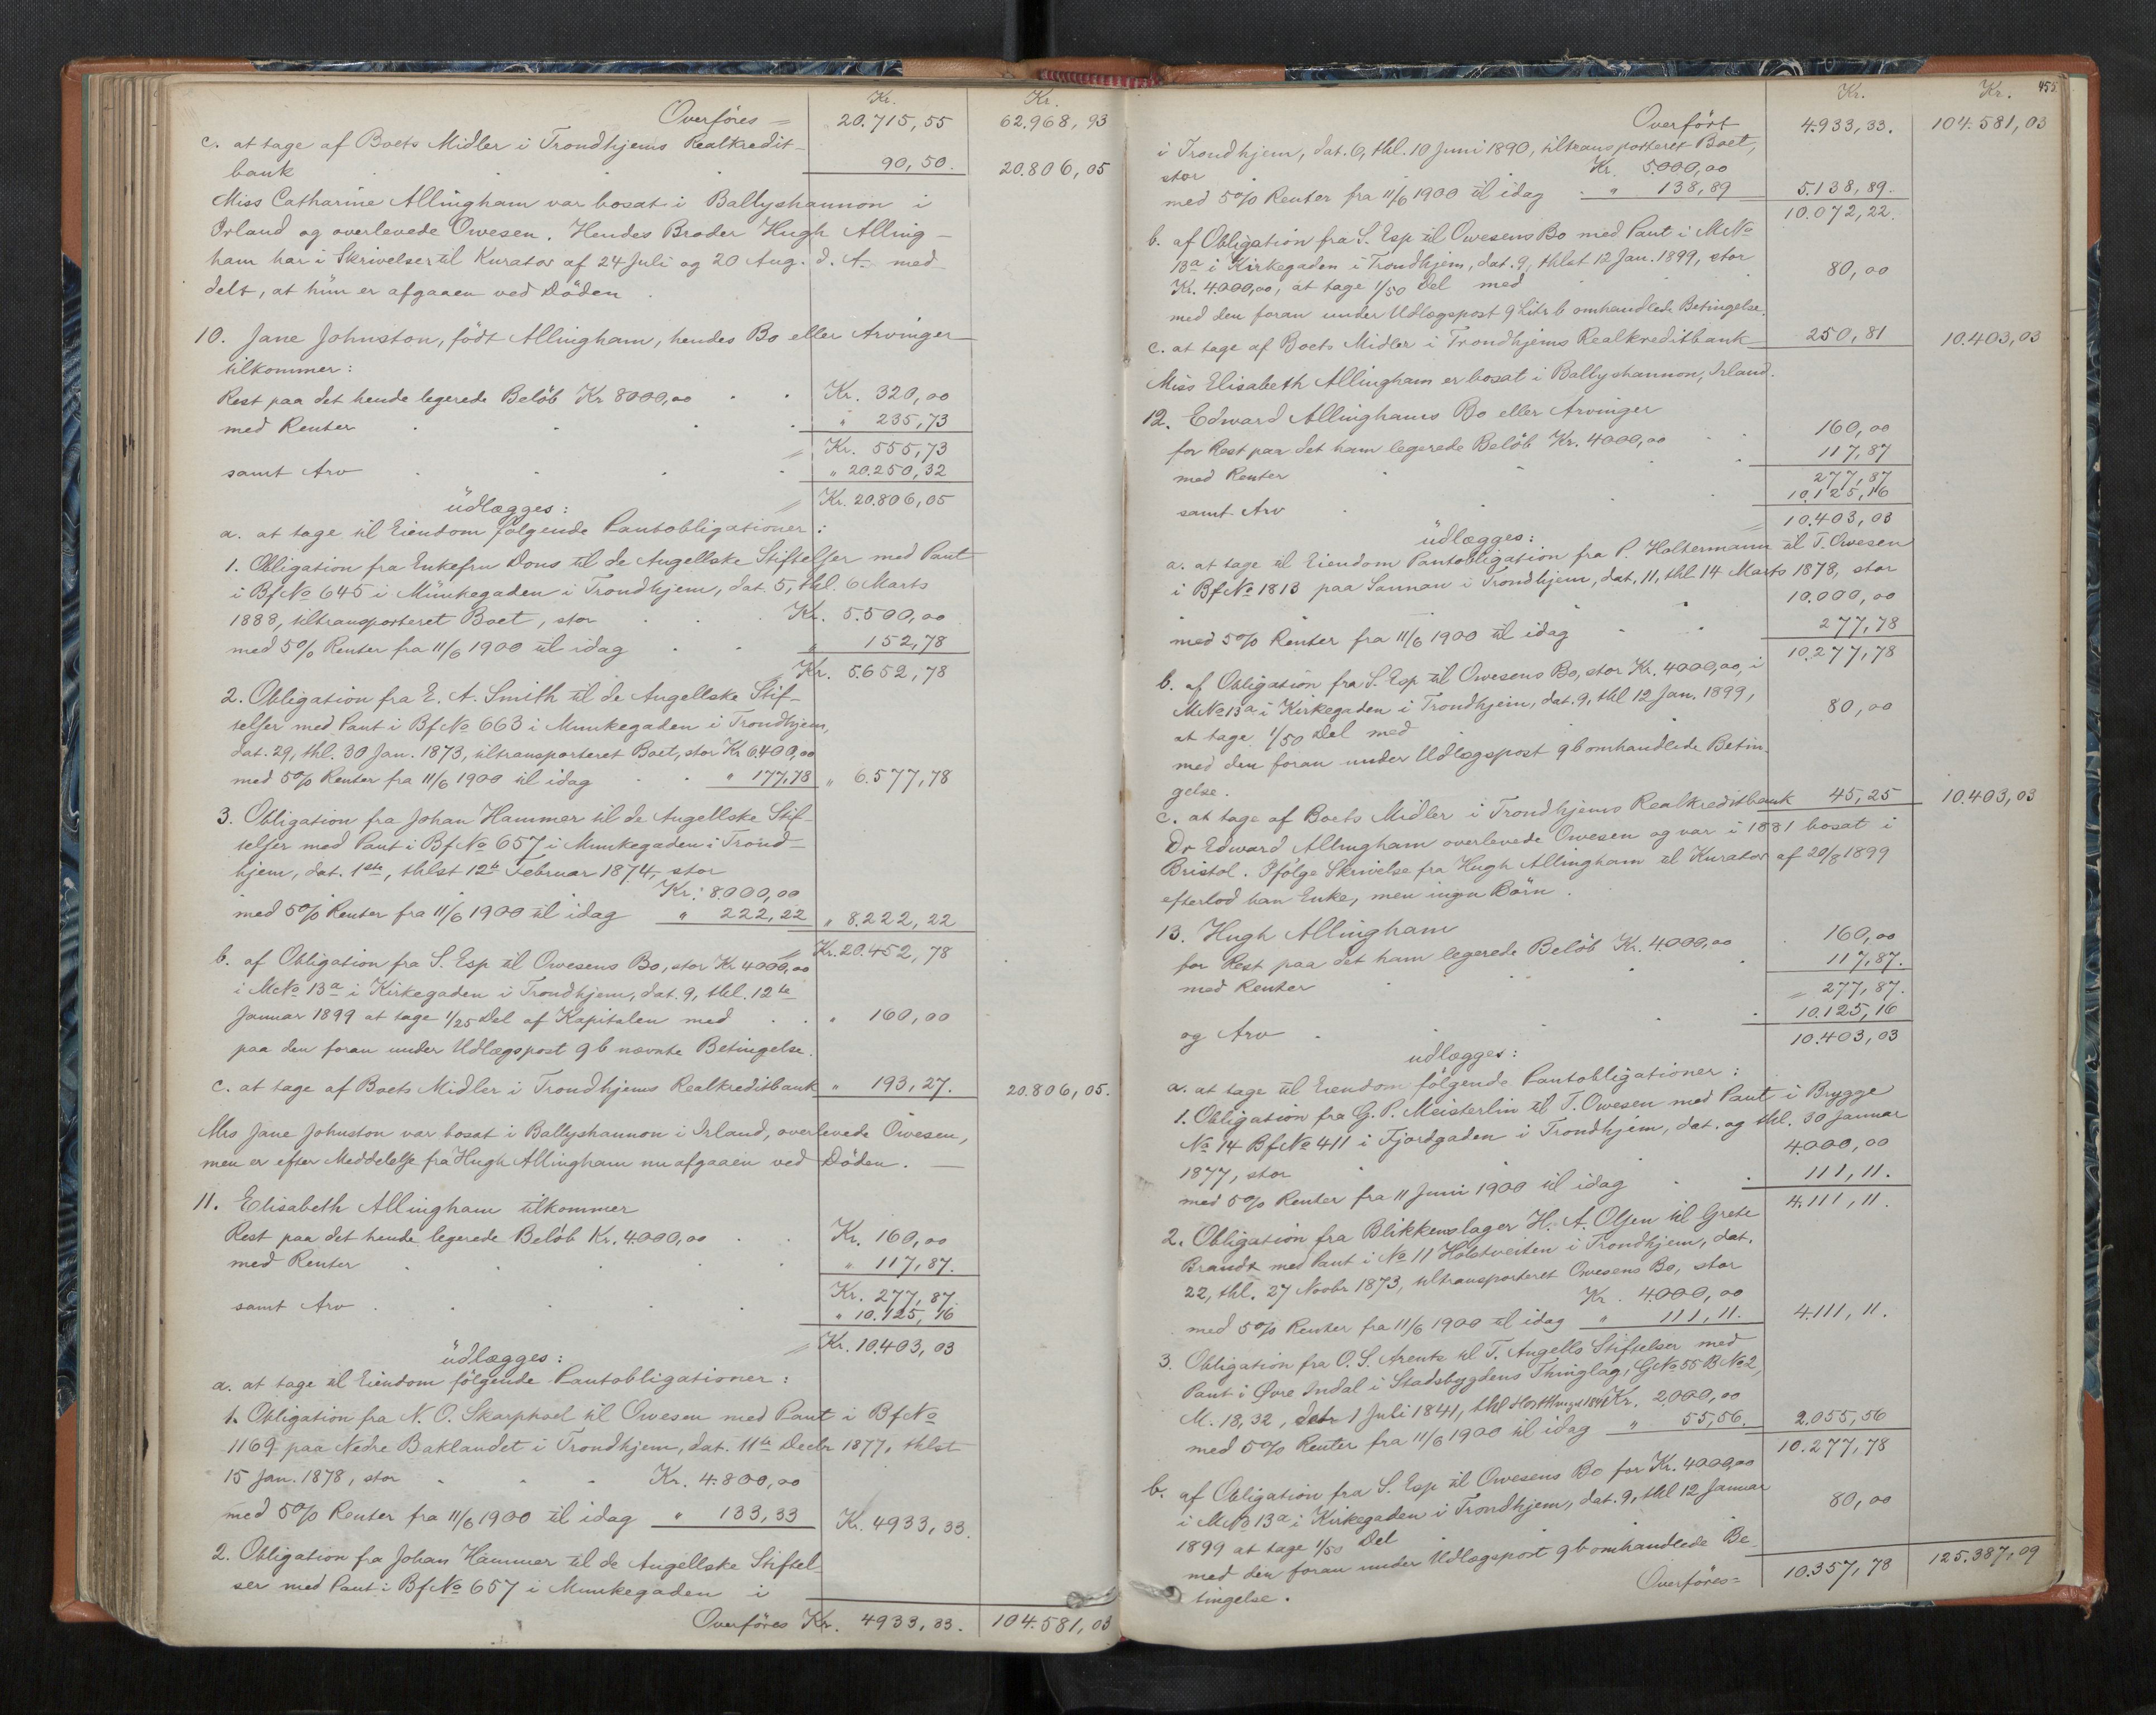 Kr. Kr.
Overføres = 20.715,55 62.968,93
c. at tage af Boets Midler i Trondhjems Realkredit-
bank . . . 90,50. 20.806,05
Miss Catharine Allingham var bosat i Ballyshannon i
Irland og overlevede Owesen. Hendes Broder Hugh Alling-
ham har i Skrivelser til Kurator af 24 Juli og 20 Aug. d. A. med-
delt, at hun er afgaaen ved Døden.
10. Jane Johnston, født Allingham, hendes Bo eller Arvinger
tilkommer:
Rest paa det hende legerede Beløb Kr 8000,00 . . Kr. 320,00
med Renter . . . . " 235,73
= Kr. 555,73
samt Arv . . . " 20.250,32
= Kr. 20.806,05
udlægges:
a. at tage til Eiendom følgende Pantobligationer:
1. Obligation fra Enkefru Dons til de Angellske Stiftelser med Pant
i Bf№ 645 i Munkegaden i Trondhjem, dat. 5, thl. 6 Marts
1888, tiltransporteret Boet, stor . . . Kr. 5.500,00
med 5% Renter fra 11/6 1900 til idag . . " 152,78
Kr. 5.652,78
2. Obligation fra E. A. Smith til de Angellske Stif-
telser med Pant i Bf№ 663 i Munkegaden i Trondhjem,
dat. 29, thl. 30 Jan. 1873, tiltransporteret Boet, stor Kr 6400,00
med 5% Renter fra 11/6 1900 til idag . . " 177,78 " 6.577,78
3. Obligation fra Johan Hammer til de Angellske Stif-
telser med Pant i Bf№ 657 i Munkegaden i Trond-
hjem, dat. 1ste, thlst 12te Februar 1874, stor
Kr. 8.000,00
med 5% Renter fra 11/6 1900 til idag " 222,22 " 8.222,22
= Kr. 20.452,78
b. af Obligation fra S. Esp til Owesens Bo, stor Kr 4000,00
i M№ 13a i Kirkegaden i Trondhjem, dat. 9, thl. 12te
Januar 1899 at tage 1/25 Del af Kapitalen med . . " 160,00
paa den foran under Udlægspost 9 b nævnte Betingelse.
c. at tage af Boets Midler i Trondhjems Realkreditbank " 193,27. 20.806,05.
Mrs Jane Johnston var bosat i Ballyshannon i Irland, overlevede Owesen,
men er efter Meddelelse fra Hugh Allingham nu afgaaen ved Døden. —
11. Elisabeth Allingham tilkommer
Rest paa det hende legerede Beløb Kr. 4.000,00 . . Kr. 160,00
med Renter . . . . " 117,87.
Kr. 277,87.
samt Arv . . . . " 10.125,16
= Kr. 10.403,03
udlægges:
a. at tage til Eiendom følgende Pantobligationer:
1. Obligation fra N. O. Skarphol til Owesen med Pant i Bf№
1169 paa Nedre Baklandet i Trondhjem, dat. 11te Decbr 1877, thlst
15 Jan. 1878, stor . . . Kr. 4.800,00
med 5% Renter fra 11/6 1900 til idag " 133,33 Kr. 4933,33.
2. Obligation fra Johan Hammer til de Angellske Stiftel-
ser med Pant i Bf№ 657 i Munkegaden i
Overføres Kr. 4933,33. 104.581,03
Kr. Kr. 455
Overført 4.933,33. 104.581,03
i Trondhjem, dat. 6, thl. 10 Juni 1890, tiltransporteret Boet,
stor . . . Kr. 5.000,00
med 5% Renter fra 11/6 1900 til idag . " 138,89 5.138,89.
10.072,22.
b. af Obligation fra S. Esp til Owesens Bo med Pant i M№
13a i Kirkegaden i Trondhjem, dat. 9, thlst 12 Jan. 1899, stor
Kr. 4.000,00, at tage 1/50 Del med 80,00
med den foran under Udlægspost 9 Litr b omhandlede Betingelse.
c. at tage af Boets Midler i Trondhjems Realkreditbank 250,81 10.403,03
Miss Elisabeth Allingham er bosat i Ballyshannon, Irland.
12. Edward Allinghams Bo eller Arvinger
for Rest paa det ham legerede Beløb Kr. 4000,00 . . 160,00
med Renter . . . 117,87
277,87
samt Arv . . . 10.125,16
= 10.403,03
udlægges:
a. at tage til Eiendom Pantobligation fra P. Holtermann til T. Owesen
i Bf№ 1813 paa Sannan i Trondhjem, dat. 11, thl. 14 Marts 1878, stor
10.000,00
med 5% Renter fra 11/6 1900 til idag . . 277,78
10.277,78
b. af Obligation fra S. Esp til Owesens Bo, stor Kr. 4000,00, i
M№ 13a i Kirkegaden i Trondhjem, dat. 9, thl 12 Jan. 1899,
at tage 1/50 Del med 80,00
med den foran under Udlægspost 9 b omhandlede Betin-
gelse.
c. at tage af Boets Midler i Trondhjems Realkreditbank 45,25 10.403,03
Dr Edward Allingham overlevede Owesen og var i 1881 bosat i
Bristol. Ifølge Skrivelse fra Hugh Allingham til Kurator af 20/8 1899
efterlod han Enke, men ingen Børn.
13. Hugh Allingham
for Rest paa det ham legerede Beløb Kr. 4.000,00 . 160,00
med Renter . . . . 117,87.
= 277,87.
og Arv . . . . 10.125,16
10.403,03
udlægges:
a. at tage til Eiendom følgende Pantobligationer:
1. Obligation fra G. P. Meisterlin til T. Owesen med Pant i Brygge
№ 14 Bf№ 411 i Fjordgaden i Trondhjem, dat. og thl. 30 Januar
1877, stor . . . 4.000,00
med 5% Renter fra 11 Juni 1900 til idag . . 111,11.
4.111,11.
2. Obligation fra Blikkenslager H. A. Olsen til Grete
Brandt med Pant i № 11 Holstveiten i Trondhjem, dat.
22, thl. 27 Novbr 1873, tiltransporteret Owesens Bo, stor
Kr. 4000,00
med 5% Renter fra 11/6 1900 til idag " 111,11. 4.111,11.
3. Obligation fra O. S. Arentz til T. Angells Stiftelser med
Pant i Øvre Indal i Stadsbygdens Thinglag, G№ 55 B№ 2,
M. 18,32, 1 Juli 1841, thl 1841 Kr. 2,000,00
med 5% Renter fra 11/6 1900 til idag " 55,56. 2.055,56
10.277,78
b. af Obligation fra S. Esp til Owesens Bo for Kr. 4000,00
i M№ 13a i Kirkegaden i Trondhjem, dat. 9, thl 12 Januar
1899 at tage 1/50 Del . . 80,00
med den foran under Udlægspost 9 b omhandlede Be-
tingelse. Overføres = 10.357,78 125.387,09